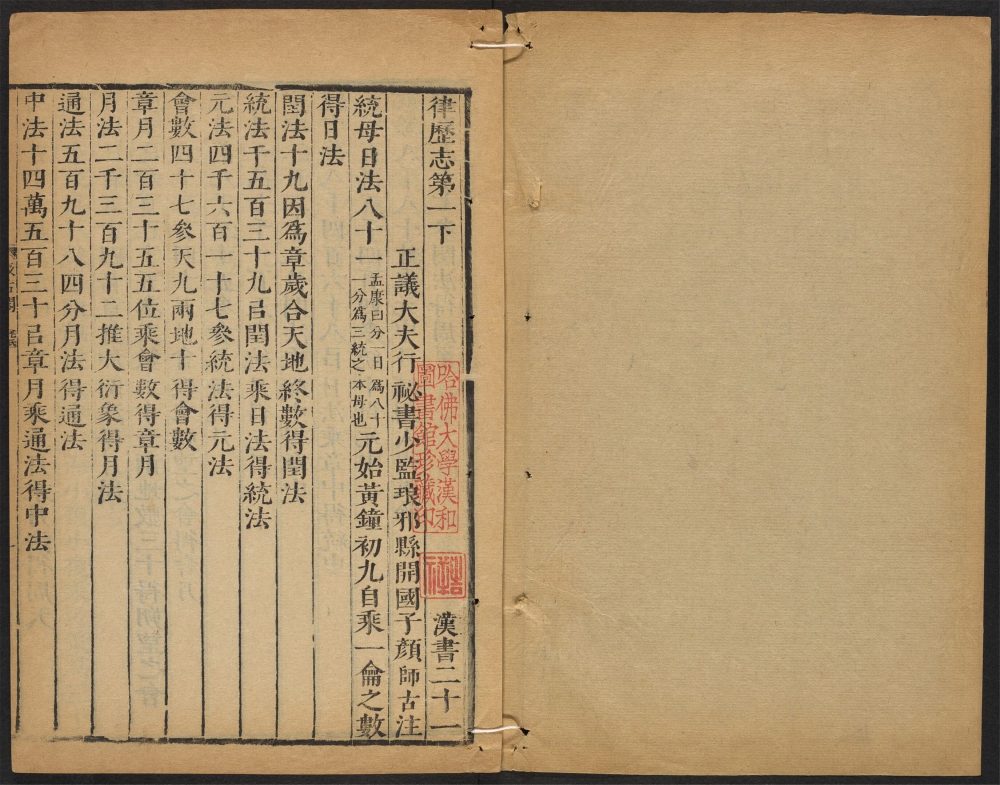 律歷志第一下　漢書二十一
正議大夫行祕書少監琅邪縣開國子顏師古注
統母日法八十一孟康曰分一日爲八十一分爲三統之本母也元始黃鐘初九自乘一龠之數
得日法
閏法十九因爲章歲合天地終數得閏法
統法千五百三十九㠯閏法乘日法得統法
元法四千六百一十七參統法得元法
會數四十七參天九兩地十得會數
章月二百三十五五位乘會數得章月
月法二千三百九十二推大衍象得月法
通法五百九十八四分月法得通法
中法十四萬五百三十㠯章月乘通法得中法
哈佛大學漢和
圖書館珍藏印